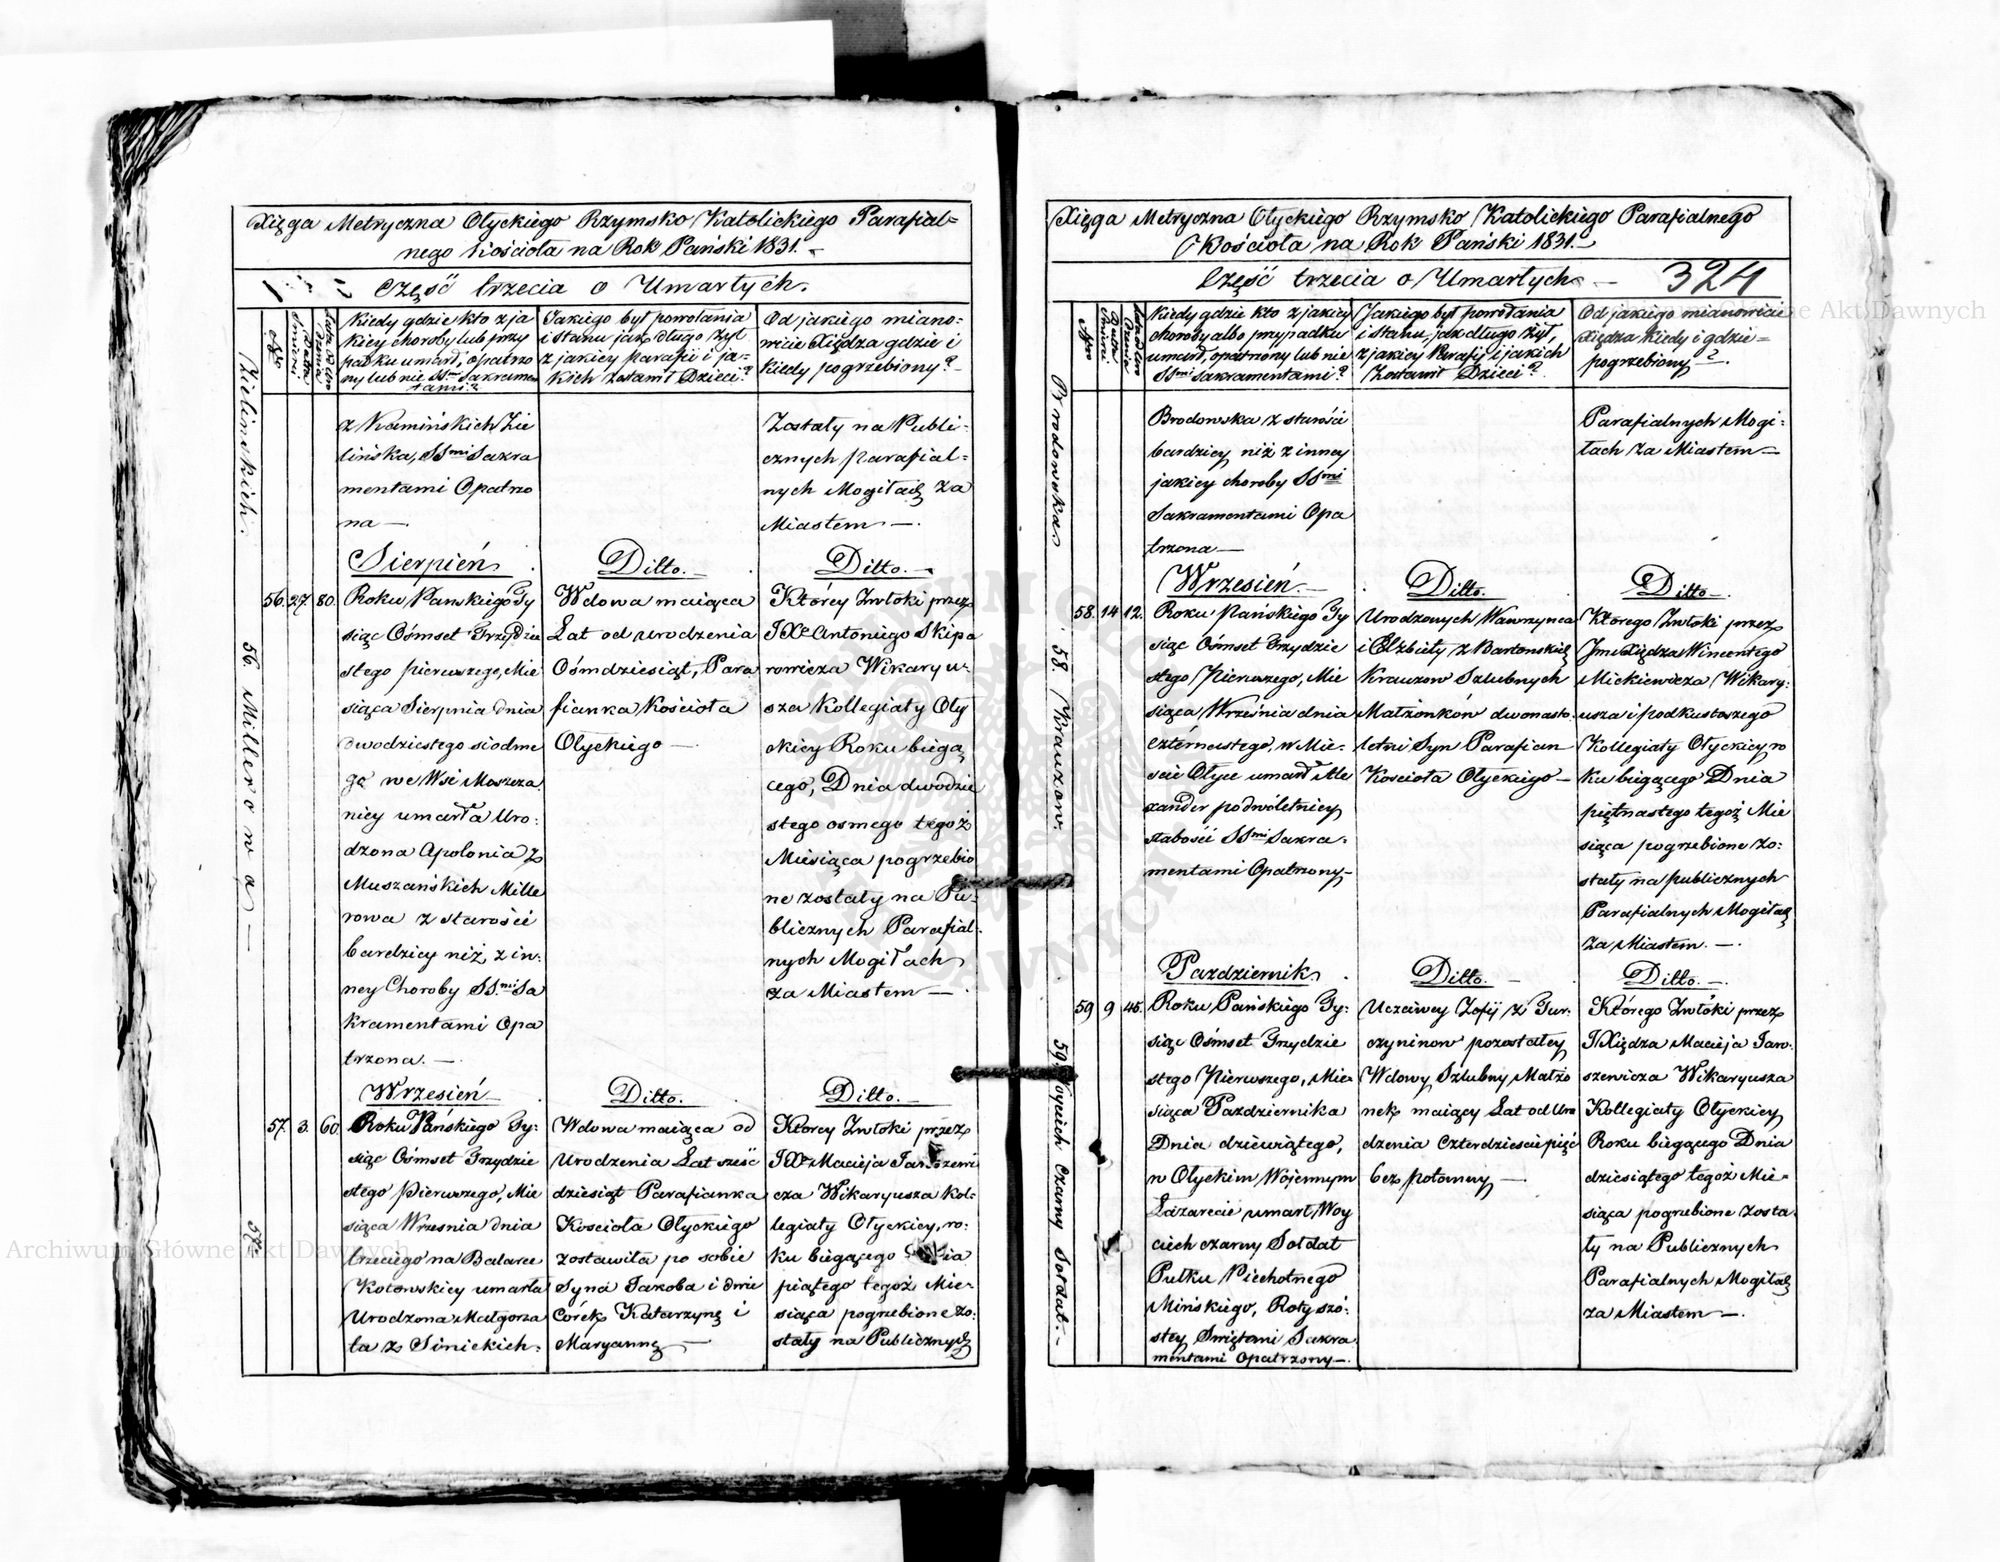 Xięga Metryczna Ołyckiego Rzymsko Katolickiego Parafial=
nego Kościoła na Rok Pański 1831. –
Część trzecia o Umarłych.
No
Kiedy gdzie kto z ja
kiey choroby lub przy
padku umarł, opatrzo
ny lub nie SSmi Sakramen
tami?
Jakiego był powołania
i stanu jak długo żył
z jakiey parafii i ja-
kich zostawił Dzieci?
Od jakiego miano:
wicie Xiędza gdzie i
kiedy pogrzebiony? –
Zielińskich.
z Kamińskich Zie
lińska, SSmi Sakra
mentami Opatrzo
na —.
Zostały na Publi-
cznych parafial=
nych Mogiłach za
Miastem —.
Sierpień
Ditto. –
Ditto. –
56. Millerowa —
56. 27. 80.
Roku Panskiego Ty
siąc Ośmset Trzydzie
stego pierwszego, Mie
siąca Sierpnia dnia
dwodziestego siodme
go we Wsi Moszcza
nicy umarła Uro:
dzona Apolonia z
Muszańskich Mille
rowa z starości
bardziey niż z in:
ney Choroby SS.mi Sa
kramentami Opa
trzona. —.
Wdowa maiąca
Lat od urodzenia
Ośmdziesiąt, Para
fianka Kościoła
Ołyckiego —
Którey Zwłoki przez
JXa Antoniego Skipa
rowicza Wikaryu-
sza Kollegiaty Oły
ckiey Roku biegą
cego, Dnia dwodzie
stego osmego tegoż
Miesiąca pogrzebio
ne zostały na Pu-
blicznych Parafial-
nych Mogiłach
za Miastem —.
Wrzesień
Ditto.
Ditto. –
57.
57. 3. 60.
Roku Pańskiego Ty:
siąc Ośmset Trzydzie
stego Pierwszego, Mie
siąca Wrzesnia dnia
trzeciego na Balarce
Kotowskiey umarła
Urodzona Małgorza
ta z Sinickich.
Wdowa maiąca od
Urodzenia Lat sześć
dziesiąt Parafianka
Kościoła Ołyckiego
zostawiła po sobie
Syna Jakoba i dwie
Córek Katarzynę i
Maryannę —
Którey Zwłoki przez
JXa Macieja Jaroszewi
cza Wikaryusza Kol-
legiaty Ołyckiey, ro-
ku biegącego Dnia
piątego tegoż Mie-
siąca pogrzebione zo-
stały na Publicznych
Xięga Metryczna Ołyckiego Rzymsko Katolickiego Parafialnego
Kościoła na Rok Pański 1831. –
Część trzecia o Umarłych. – 324
No
Kiedy gdzie kto z jakiey
choroby albo przypadku
umarł, opatrzony lub nie
SSmi sakramentami?
Jakiego był powołania
i stanu, jak długo żył,
z jakiey Parafii i jakich
Zostawił Dzieci?
Od jakiego mianowicie
Xiędza kiedy i gdzie=
pogrzebiony? —.
Brodowska
Brodowska z starości
bardziey niż z inney
jakiey choroby SSmi
Sakramentami Opa
trzona —
Parafialnych Mogi:
łach za Miastem —
Wrzesień. –
Ditto.
Ditto –.
58. Krauzow.
58. 14 12.
Roku Pańskiego Ty
siąc Ośmset Trzydzie
stego Pierwszego, Mie
siąca Września dnia
czternastego, w Mie-
ście Ołyce umarł Ale
xander po dwóletniey
słabości SSmi Sakra-
mentami Opatrzony –
Urodzonych Wawrzynca
i Elżbiety z Bartonskich
Krauzow Szlubnych
Małżonków dwonasto
letni Syn Parafian
Kościoła Ołyckiego –
Którego Zwłoki przez
Jmć Xiędza Wincentego
Mickiewicza Wikary-
usza i podkustoszego
Kollegiaty Ołyckiey ro
ku biegącego Dnia
piętnastego tegoż Mie
siąca pogrzebione zo-
stały na publicznych
Parafialnych Mogiłach
za Miastem. —.
Pazdziernik.
Ditto. –
Ditto. –.
59 Woyciech Czarny Sołdat. –
59 9 45.
Roku Pańskiego Ty:
siąc Ośmset Trzydzie
stego Pierwszego, Mie-
siąca Pazdziernika
Dnia dziewiątego,
w Ołyckim Wojennym
Lazarecie umarł Woy
ciech czarny Sołdat
Pułku Piechotnego
Mińskiego, Roty szó:
stey Swiętemi Sakra
mentami opatrzony —.
Uczciwey Zofij z Tur-
czyninow pozostałey
Wdowy Szlubny Małżo
nek, maiący Lat od Uro
dzenia Czterdzieście pięć
bez potomny —
Którego Zwłoki przez
J Xiędza Macieja Jaro-
szewicza Wikaryusza
Kollegiaty Ołyckiey
Roku biegącego Dnia
dziesiątego tegoż Mie-
siąca pogrzebione zosta
ły na Publicznych
Parafialnych Mogiłach
za Miastem —.
Archiwum Główne Akt Dawnych
Archiwum Główne Akt Dawnych